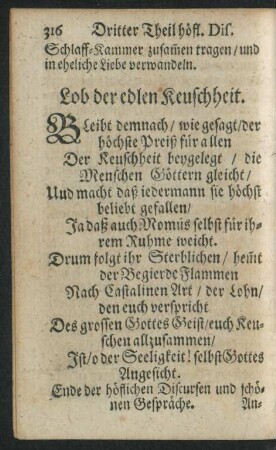 316 Dritter Theil höfl. Dis.
Schlaff-Kammer zusam̃en tragen / und
in eheliche Liebe verwandeln.
Lob der edlen Keuschheit.
BLeibt demnach / wie gesagt / der
höchste Preiß für allen
Der Keuschheit beygelegt / die
Menschen Göttern gleicht /
Und macht daß iedermann sie höchst
beliebt gefallen /
Ja daß auch Momus selbst für ih-
rem Ruhme weicht.
Drum folgt ihr Sterblichen / hem̃t
der Begierde Flammen
Nach Castalinen Art / der Lohn /
den euch verspricht
Des grossen Gottes Geist / euch Keu-
schen allzusammen /
Ist / o der Seeligkeit! selbst Gottes
Angesicht.
Ende der höflichen Discursen und schö-
nen Gespräche. An-